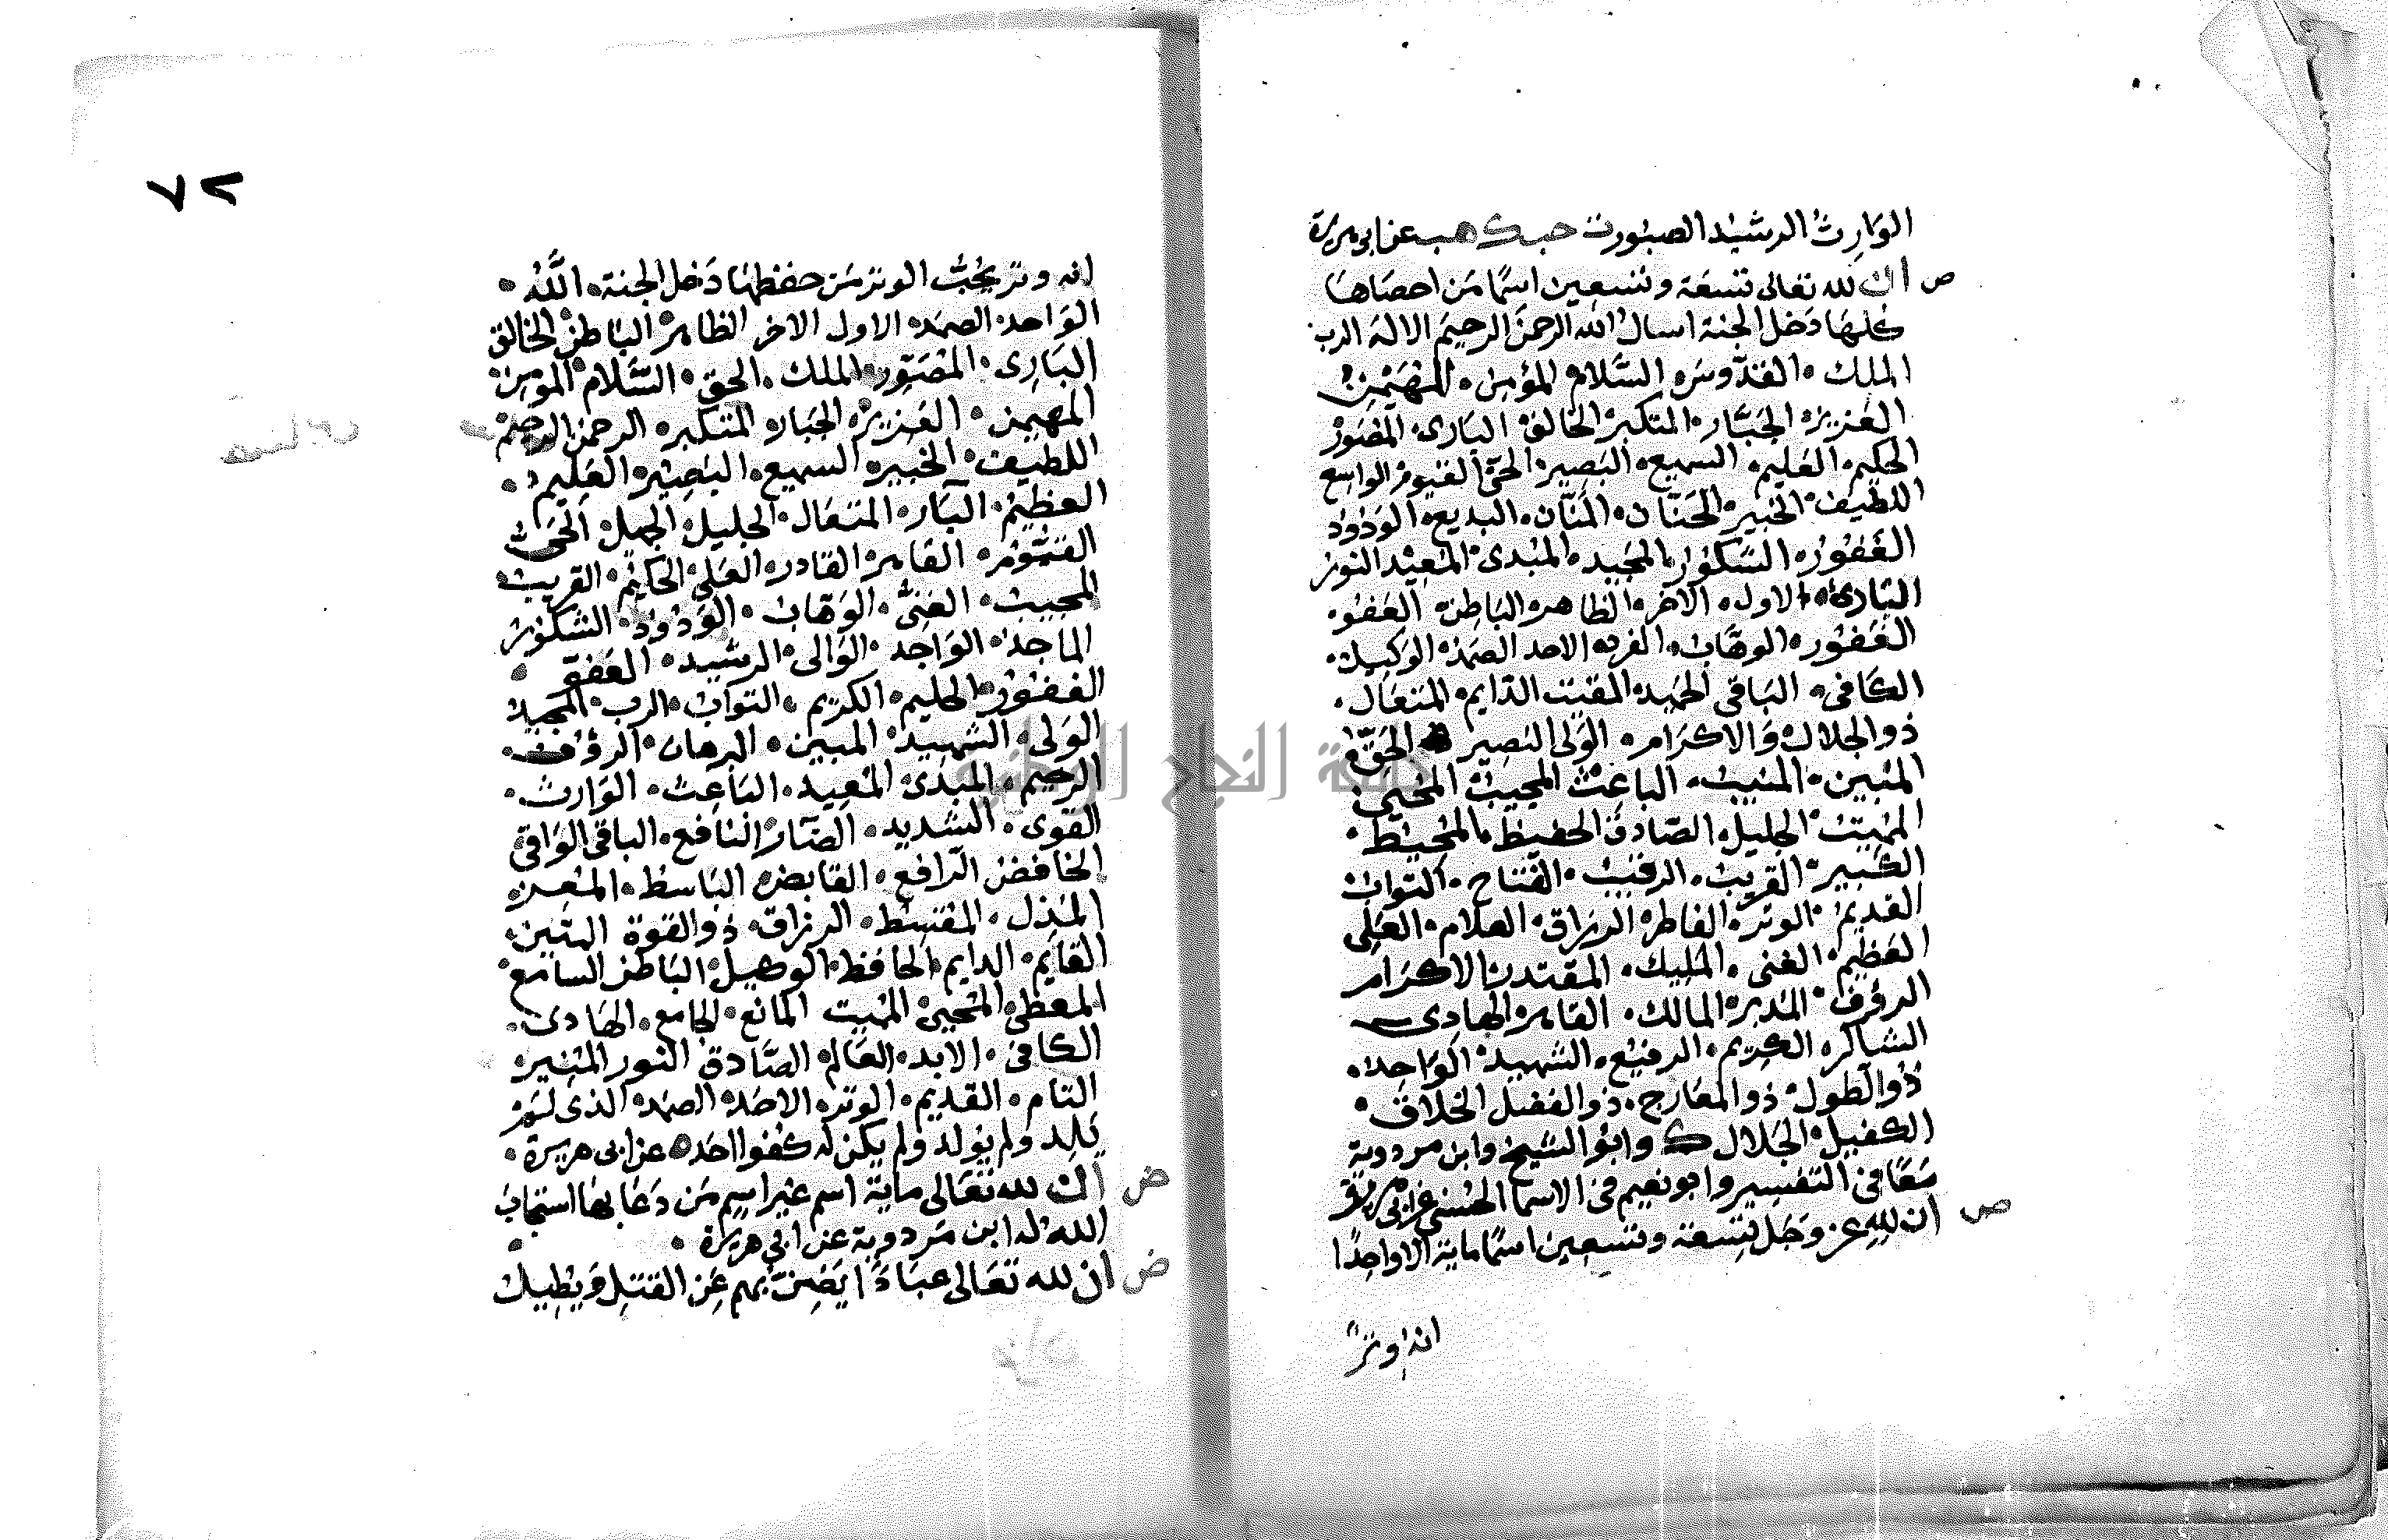 الوارث الرشيد الصبور ت حب ك هب عن ابى هريرة
ص ان لله تعالى تسعة وتسعين اسما من احصاها
كلها دخل الجنة اسال الله الرحمن الرحيم الاله الرب
الملك القدوس السلام المؤمن المهيمن
العزيز الجبار المتكبر الخالق البارى المصور
الحكيم العليم السميع البصير الحى القيوم الواسع
اللطيف الخبير الحنان المنان البديع الودود
الغفور الشكور المجيد المبدى المعيد النور
البارئ الاول الآخر الظاهر الباطن العفو
الغفور الوهاب الفرد الاحد الصمد الوكيل
الكافى الباقى الحميد المقيت الدايم المتعال
ذو الجلال والاكرام الولى النصير الحق
المبين المنيب الباعث المجيب المحيى
المميت الجليل الصادق الحفيظ المحيط
الكبير القريب الرقيب الفتاح التواب
القديم الوتر الفاطر الرزاق العلام العلى
العظيم الغنى المليك المقتدر الاكرام
الرؤف المدبر المالك القاهر الهادى
الشاكر الكريم الرفيع الشهيد الواحد
ذو الطول ذو المعارج ذو الفضل الخلاق
الكفيل الجلال ك وابو الشيخ وابن مردوية
معا فى التفسير وابو نعيم فى الاسما الحسنى عن ابى هريرة
ص ان لله عز وجل تسعة وتسعين اسما ماية الا واحدا
انه وتر
٧٢
انه وتر يحب الوتر من حفظها دخل الجنة الله
الواحد الصمد الاول الاخر الظاهر الباطن الخالق
البارى المصور الملك الحق السلام المومن
المهيمن العزيز الجبار المتكبر الرحمن الرحيم
اللطيف الخبير السميع البصير العليم
العظيم البار المتعال الجليل الجميل الحى
القيوم القاهر القادر العلى الحكيم القريب
المجيب الغنى الوهاب الودود الشكور
الماجد الواجد الوالى الرشيد العفو
الغفور الحليم الكريم التواب الرب المجيد
الولى الشهيد المبين البرهان الرؤف
الرحيم المبدى المعيد الباعث الوارث
القوى الشديد الضار النافع الباقى الواقى
الخافض الرافع القابض الباسط المعز
المذل المقسط الرزاق ذو القوة المتين
القايم الدايم الحافظ الوكيل الباطن السامع
المعطى المحيى المميت المانع الجامع الهادى
الكافى الابد العالم الصادق النور المنير
التام القديم الوتر الاحد الصمد الذى لم
يلد ولم يولد ولم يكن له كفوا احد ه عن ابى هريرة
ض ان لله تعالى ماية اسم غير اسم من دعا بها استجاب
الله له ابن مردوية عن ابى هريرة
ض ان لله تعالى عبادا يضن بهم عن القتل ويطيل